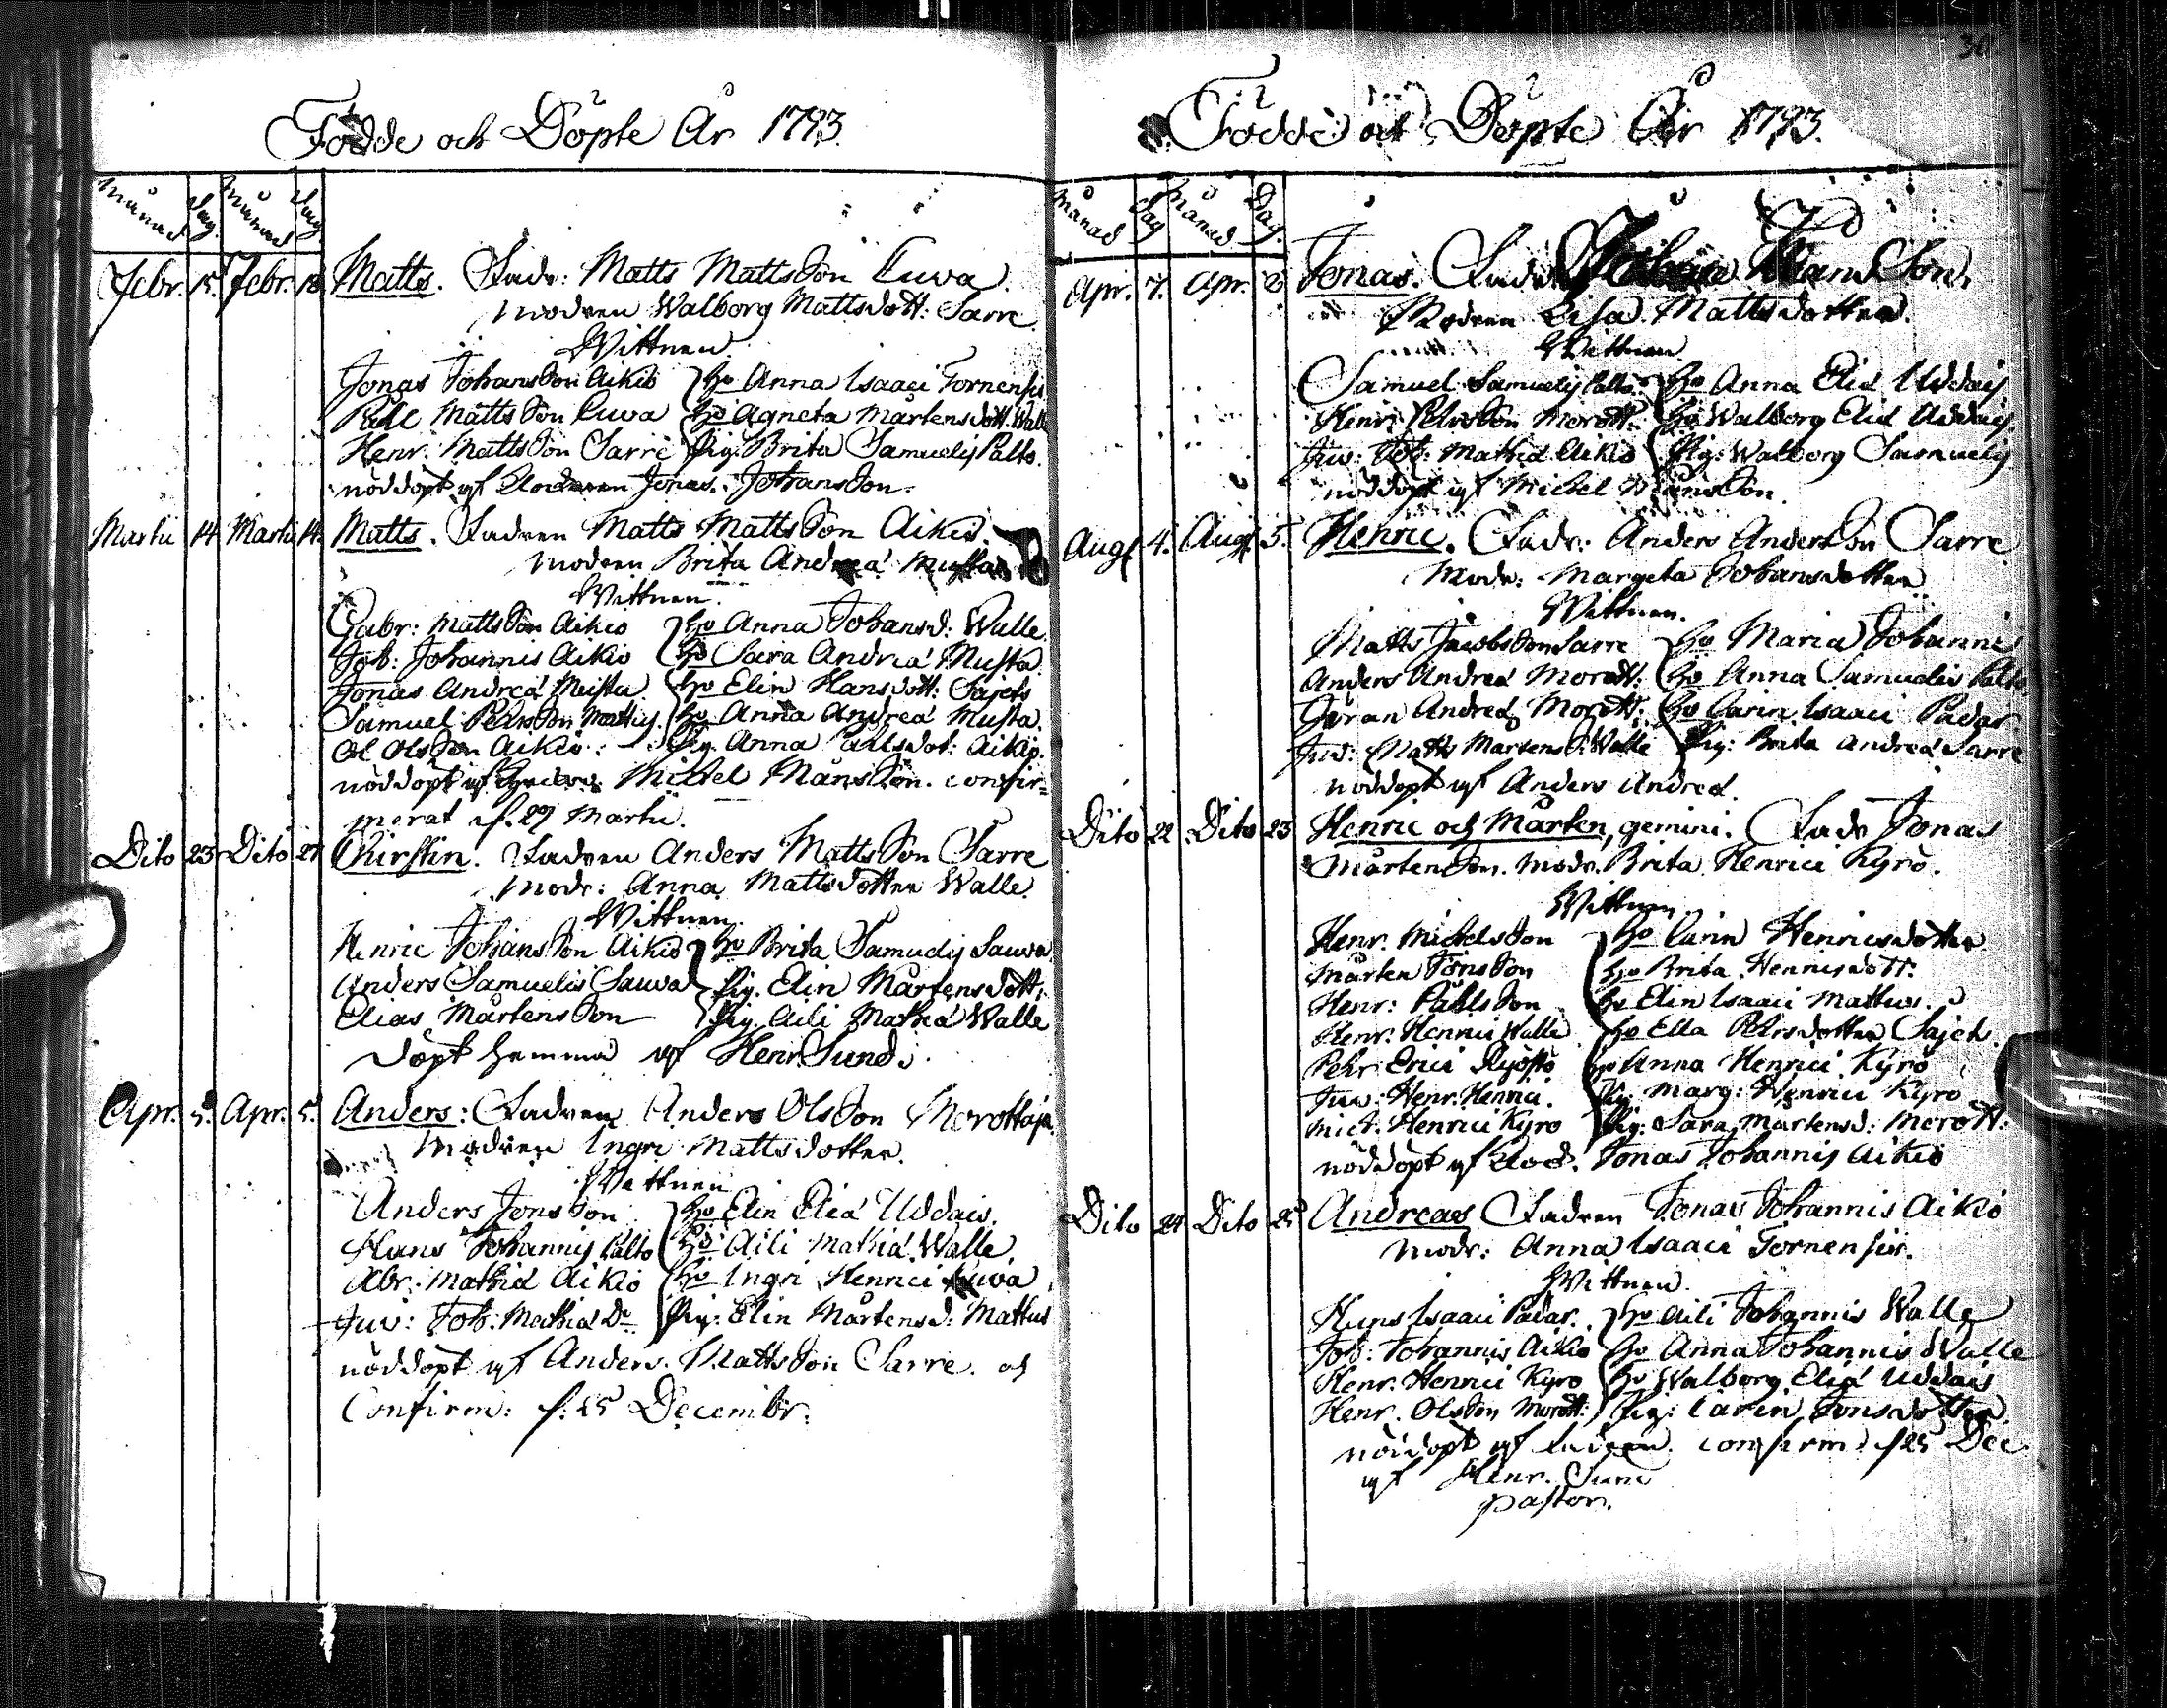 Födde och Döpte År 1793.
Månad Dag. Månad Dag
Febr. 15. Febr. 18 Matts. Fadr: Matts Mattsson Kuwa.
Modren Walborg Mattsdott: Sarre
Wittnen.
Jonas Johansson Aikio } Ho Anna Isaaci Tornensis
Påhl Mattsson Kuwa } Ho Agneta Mårtensdott. Walle
Henr: Mattsson Sarre } Pig. Brita Samuelis Palto.
nöddöpt af Jonas Johansson.
Martii 14 Martii 14. Matts. Fadren Matts Mattsson Aikio.
Modren Brita Andreæ Musta
Wittnen.
Gabr: Mattsson Aikio } Ho Anna Johansd: Walle.
Joh: Johannis Aikio } Ho Sara Andreæ Musta
Jonas Andreæ Musta } Ho Elin Hansdott: Sajets
Samuel Pehrsson Mattus. } Ho Anna Andreæ Musta.
Ol Olsson Aikio: } Pig. Anna Påhlsdot: Aikio.
nöddöpt af Michel Månsson. confir=
merat d. 29 Martii.
Dito 23 Dito 27 Chirstin. Fadren Anders Mattsson Sarre
Modr: Anna Mattsdotter Walle.
Wittnen.
Henric Johansson Aikio } Ho Brita Samuelis Sauwa.
Anders Samuelis Sauwa } Pig. Elin Mårtensdott.
Elias Mårtensson } Pig. Aili Mathiæ Walle
döpt hemma af Henr. Sund.
Apr. 5. Apr. 5. Anders: Fadren Anders Olsson Morottaja.
Modren Ingri Mattsdotter.
Wittnen
Anders Jonsson } Ho Elin Eliæ Uddais.
Hans Johannis Palto } Ho Aili Mathiæ Walle.
Abr: Mathiæ Aikio } Ho Ingri Henrici Kuwa
Juv: Joh: Mathiæ Do } Pig: Elin Mårtensd: Mattus
nöddöpt af Anders Mattsson Sarre. och
Confirm: d. 25 Decembr.
30
Födde och Döpte År 1793.
Månad Dag Månad Dag.
Apr. 7. Apr. 8 Jonas. Fadr Månsson.
Modren Lisa Mattsdotter.
Wittnen.
Samuel Samuelis Palto } Ho Anna Eliæ Uddais
Henr: Pehrsson Morott: } Ho Walborg Eliæ Uddais
Juv: Joh: Mathiæ Aikio } Pig: Walborg Samuelis
nöddöpt af Michel Månsson.
Aug. 4. Aug. 5. Henric. Fadr: Anders Andersson Sarre
Modr: Margeta Johansdotter
Wittnen.
Matts Jacobsson Sarre } Ho Maria Johannis
Anders Andreæ Morott: } Ho Anna Samuelis Palto
Göran Andreæ Morott: } Ho Carin Isaaci Padar
Juv: Matts Mårtens S. Walle } Pig: Brita Andreæ Sarre
nöddöpt af Anders Andreæ.
Dito 22 Dito 23 Henric och Mårten, gemini. Fadr Jonas
Mårtensson. Modr. Brita Henrici Kyrö.
Wittnen
Henr. Michelsson } Ho Carin Henricsdotter
Mårten Jönsson } Ho Brita Henricsdott:
Henr: Påhlsson } Ho Elin Isaaci Mattus.
Henr: Henrici Walle } Ho Ella Pehrsdotter Sajets.
Pehr Erici } Ho Anna Henrici Kyrö
Juv: Henr. Henrici. } Pig. Marg: Henrici Kyrö
Mich. Henrici Kyrö } Pig: Sara Mårtensd: Morott:
nöddöpt af Jonas Johannis Aikio
Dito 24 Dito 25 Andreas Fadren Jonas Johannis Aikio
Modr: Anna Isaaci Tornensis.
Wittnen.
Hans Isaaci Padar. } Ho Aili Johannis Walle
Joh: Johannis Aikio } Ho Anna Johannis Walle
Henr. Henrici Kyrö } Ho Walborg Eliæ Uddais
Henr. Olsson Morott: } Pig: Carin Jonsdotter
nöddöpt af Fadren. confirm: d 25 Dec.
af Henr. Sund
pastor.